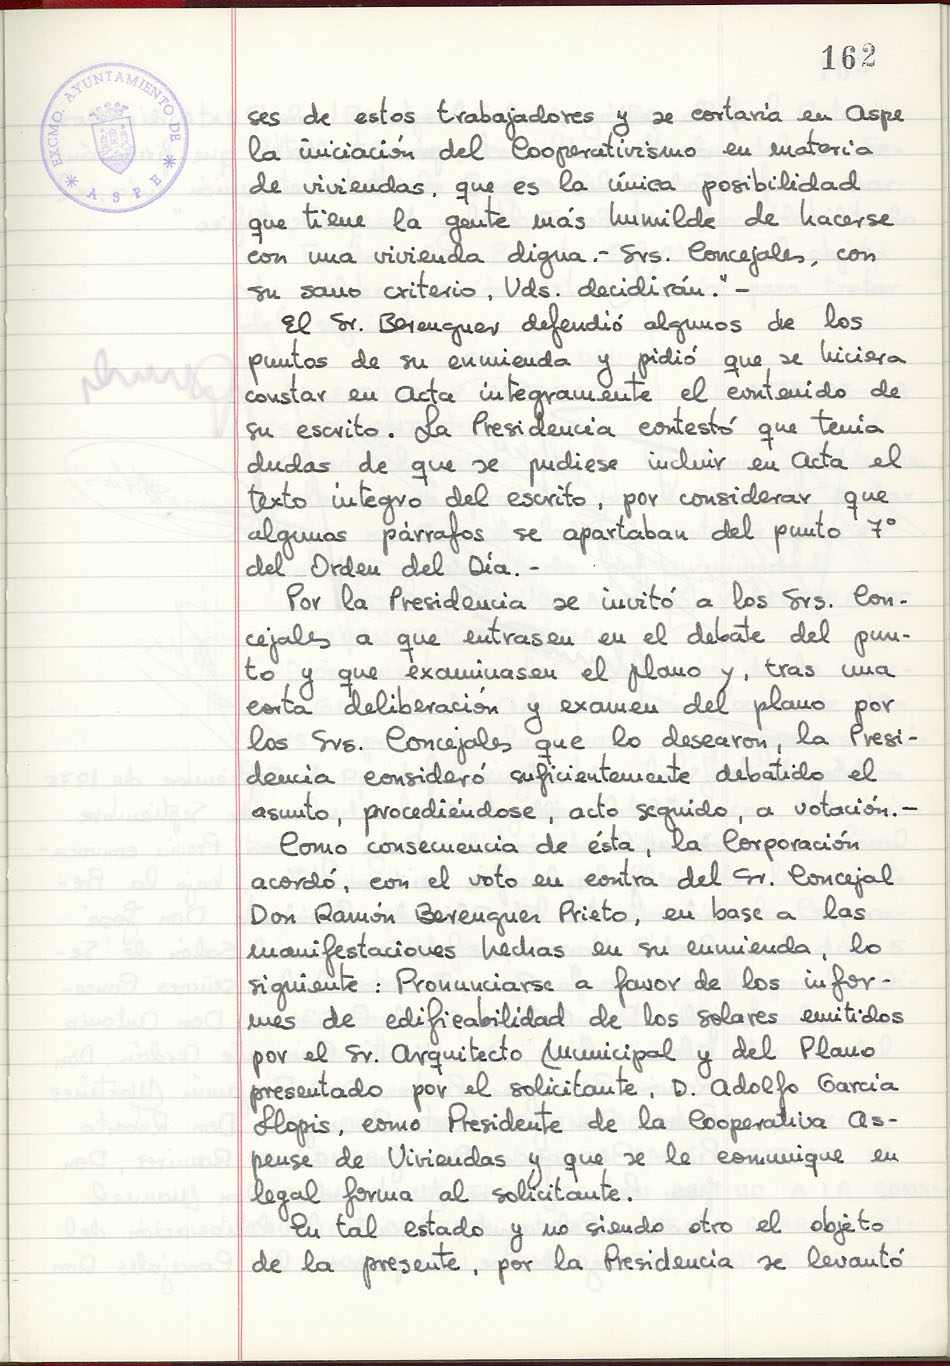 162
EXCMO. AYUNTAMIENTO DE
* ASPE *
ses de estos trabajadores y se cortaría en Aspe
la iniciación del Cooperativismo en materia
de viviendas, que es la única posibilidad
que tiene la gente más humilde de hacerse
con una vivienda digna.- Srs. Concejales, con
su sano criterio, Vds. decidirán."-
El Sr. Berenguer defendió algunos de los
puntos de su enmienda y pidió que se hiciera
constar en Acta integramente el contenido de
su escrito. La Presidencia contestó que tenia
dudas de que se pudiese incluir en Acta el
texto íntegro del escrito, por considerar que
algunos párrafos se apartaban del punto 7º
del Orden del Día.-
Por la Presidencia se invitó a los Srs. Con-
cejales a que entrasen en el debate del pun-
to y que examinasen el plano y, tras una
corta deliberación y examen del plano por
los Srs. Concejales que lo desearon, la Presi-
dencia consideró suficientemente debatido el
asunto, procediéndose, acto seguido, a votación.-
Como consecuencia de ésta, la Corporación
acordó, con el voto en contra del Sr. Concejal
Don Ramón Berenguer Prieto, en base a las
manifestaciones hechas en su enmienda, lo
siguiente: Pronunciarse a favor de los infor-
mes de edificabilidad de los solares emitidos
por el Sr. Arquitecto Municipal y del Plano
presentado por el solicitante, D. Adolfo García
Llopis, como Presidente de la Cooperativa As-
pense de Viviendas y que se le comunique en
legal forma al solicitante.
En tal estado y no siendo otro el objeto
de la presente, por la Presidencia se levantó